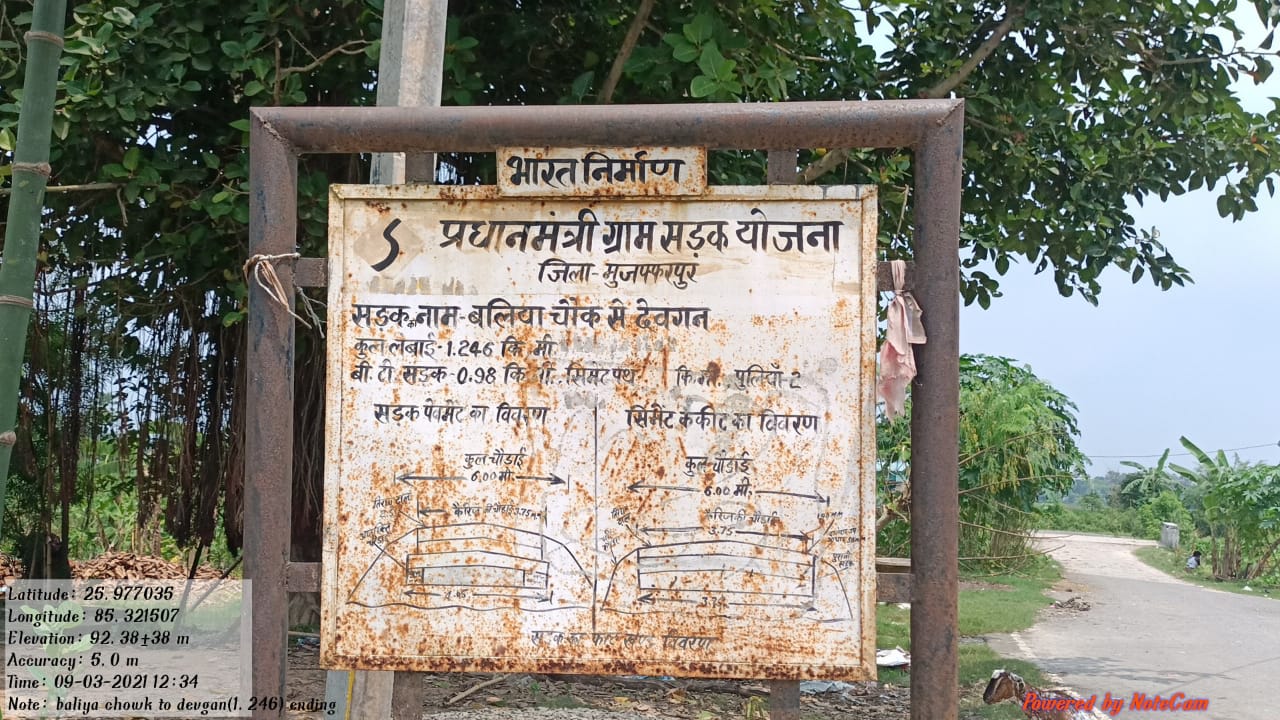 भारत निर्माण
प्रधानमंत्री ग्राम सड़क योजना
जिला-मुजफ्फरपुर
सड़क नाम-बलिया चौक से देवगन
कुल लंबाई-1.246 कि. मी.
बी. टी. सड़क-0.98 कि. मी. सिमेंट पथ कि.मी. पुलियाँ-2
सड़क पेवमेंट का विवरण
सिमेंट कंकीट का विवरण
कुल चौड़ाई
6.00 मी.
कुल चौड़ाई
6.00 मी.
कैरिज की चौड़ाई 3.75m
कैरिज की चौड़ाई
3.75
विवरण
Latitude: 25.977035
Longitude: 85.321507
Elevation: 92.38±38 m
Accuracy: 5.0 m
Time: 09-03-2021 12:34
Note: baliya chowk to devgan(1.246) ending
Powered by NoteCam